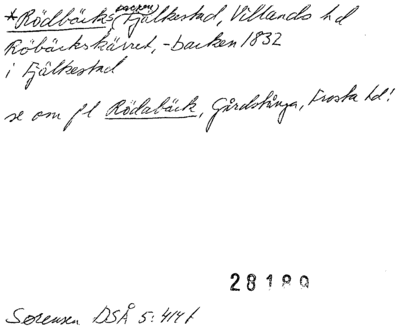 *Rödbäcks (socken) Fjälkestad, Villands hd
Röbäckskärret, -backen 1832
i Fjälkestad
se om fl Rödabäck, Gårdstånga, Frosta hd!
28189
Sørensen DSÅ 5:414f